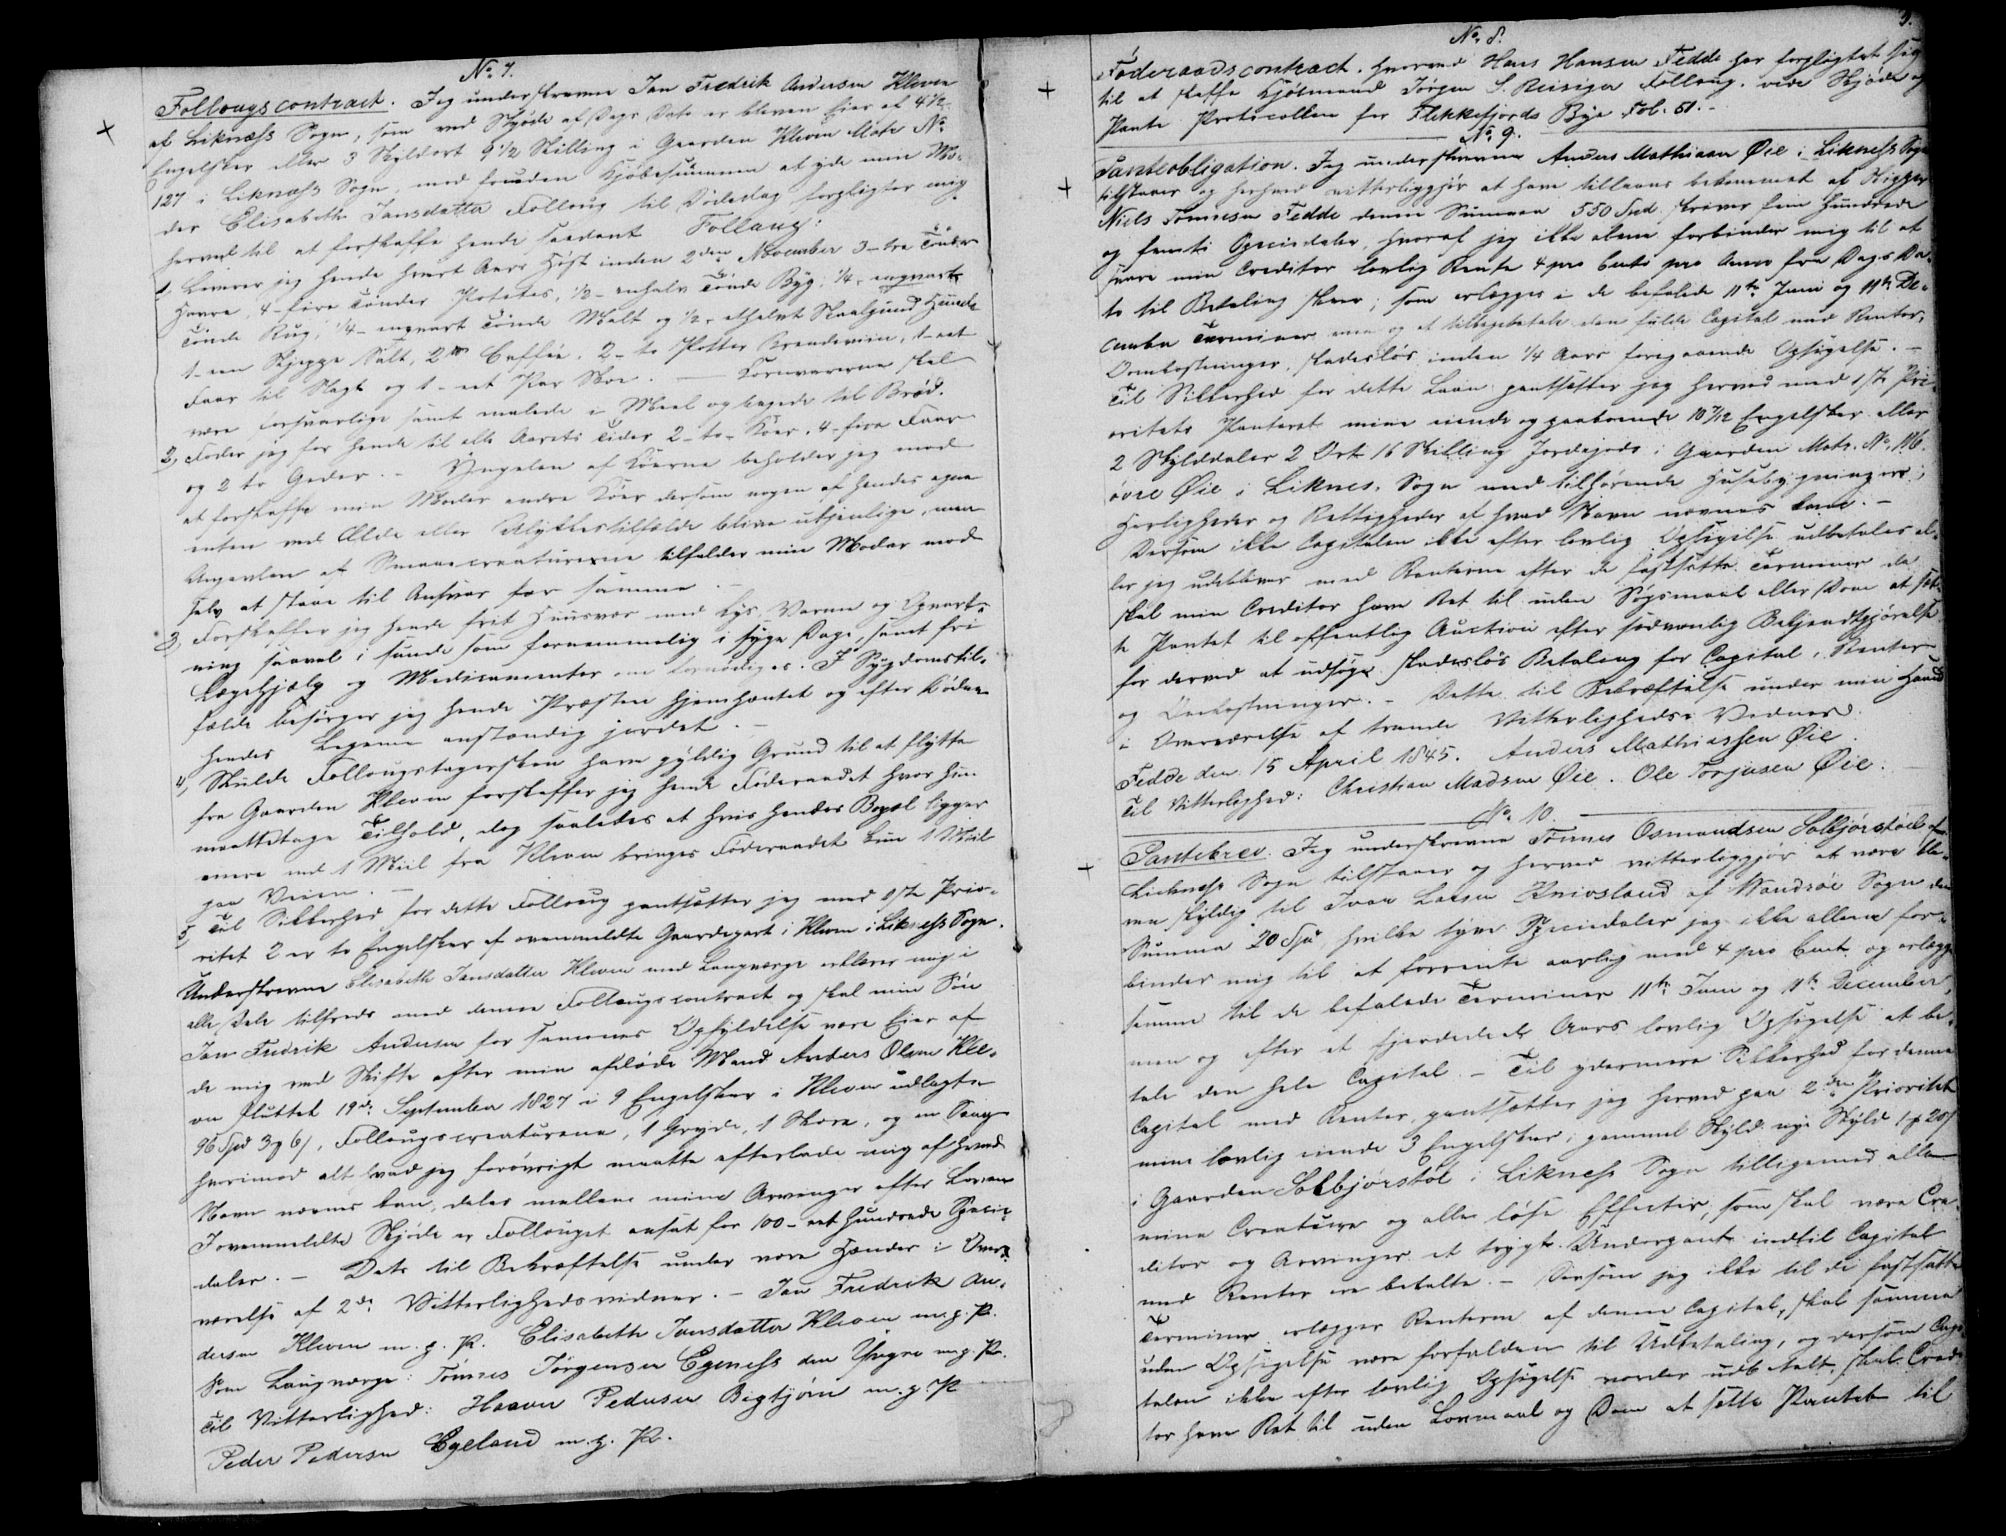 No. 7.
Follougscontract. Jeg underskrevne Jan Fredrik Andersen Kleven
af Liknæss Sogn, som ved Skjøde af Dags Dato er bleven Eier af 4 1/2
Engelsker eller 3 Skyldort 9 1/2 Skilling i Gaarden Kleven Matr. No.
127 i Liknæss Sogn, med foruden Kjøbesummen at yde min Mo-
der Elisabeth Jansdatter Folloug til Dødedag forpligter mig
herved til at forskaffe hende saadant Folloug:
1, Leverer jeg hende hvert Aars Høst inden 2den November 3 - tre Tønder
Havre, 4 - fire Tønder Potetes, 1/2 - enhalv Tønde Byg, 1/4 - engvart
Tønde Rug, 1/4 - engvart Tønde Malt og 1/2 - ethalvt Skaalpund
1 - een Skjeppe Salt, 2 Caffee, 2 - to Potter Brændeviin, 1 - eet
Faar til Slagt og 1 - eet Par Skoe. — Kornvarerne skal
være forsvarlige samt malede i Meel og bagede til Brød.
2, Føder jeg for hende til alle Aarets Tider 2 - to - Køer, 4 - fire Faar
og 2 to Geder. - Yngelen af Køerne beholder jeg mod
at forskaffe min Moder andre Køer dersom nogen af hendes egne
enten ved Ælde eller Ulykkestilfælde blive utjenlige, men
Avgevlen af Smaacreaturerne tilfalder min Moder mod
selv at staae til Ansvar for samme. -
3, Forskaffer jeg hende frit Huusvær med Lys, Varme og Opvart-
ning saavel i sunde som fornemmelig i syge Dage, samt fri
Lægehjælp og Medicamenter om fornødiges. I Sygdomstil-
fælde besørger jeg hende Præsten hjemhentet og efter Døden
hendes Legeme anstændig jordet. -
4, Skulde Follougstagersken have gyldig Grund til at flytte
fra Gaarden Kleven forskaffer jeg hende Føderaadet hvor hun
maatte tage Tilhold, dog saaledes at hvis hendes Bopæl ligger
mere end 1 Miil fra Kleven bringes Føderaadet kun 1 Miil
paa Veien. -
5, Til Sikkerhed for dette Folloug pantsætter jeg med 1ste Prio-
ritet 2 er to Engelsker af ovenmeldte Gaardepart i Kleven i Liknæss Sogn.
Underskrevne Elisabeth Jansdatter Kleven med Laugværge erklærer mig i
alle Dele tilfreds med denne Follougscontract og skal min Søn
Jan Fredrik Andersen for sammes Opfyldelse være Eier af
de mig ved Skifte efter min afdøde Mand Anders Olsen Kle-
ven sluttet 19de September 1827 i 9 Engelsker i Kleven udlagte
96 Spd 3 6 , Follougscreaturene, 1 Gryde, 1 , og en Seng
hvorimod alt hvad jeg forøvrigt maatte efterlade mig af hvad
Navn nævnes kan, deles mellem mine Arvinger efter Loven
I ovenmeldte Skjøde er Follouget ansat for 100 - eet Hundrede Specie-
daler. - Dets til Bekræftelse under vore Hænder i Over-
værelse af 2de Vitterlighedsvidner. - Jan Fredrik An-
dersen Kleven m. p. P. Elisabeth Jansdatter Kleven m. p. P.
Som Laugværge: Tønnes Jørgensen Egeness den Yngre m. p. P.
Til Vitterlighed: Haaver Pedersen Bigtjøn m. p. P
Peder Pedersen Egeland m. p. P.
3.
No. 8.
Føderaadscontract. hvorved Hans Hansen Fedde har forpligtet sig
til at skaffe Kjøbmand Jørgen S. Reisiger Folloug. vide Skjøde og
Pante Protocollen for Flekkefjords Bye Fol. 51. -
No. 9.
Panteobligation. Jeg underskrevne Anders Mathiasen Øie i Likness Sogn
tilstaaer og herved vitterliggjør at have tillaans bekommet af
Niels Tønnesen Fedde denne Summen 550 Spd. skriver fem Hundrede
og femti Speciedaler, hvoraf jeg ikke alene forbinder mig til at
svare min Creditor lovlig Rente 4 pro Cento pro Anno fra Dags Da-
to til Betaling skeer; som erlægges i de befalede 11te Juni og 11te De-
cember Terminer men og at tilbagebetale den fulde Capital med Renter,
Omkostninger, skadesløs inden 1/4 Aars foregaaende Opsigelse. -
Til Sikkerhed for dette Laan pantsætter jeg herved med 1ste Pri-
oritets Panteret mine eiende og paaboende 10 7/12 Engelsker eller
2 Skylddaler 2 Ort 16 Skilling Jordejods i Gaarden Matr. No. 116
øvre Øie i Liknes Sogn med tilhørende Husebygninger,
Herligheder og Rettigheder af hvad Navn nævnes kan. -
Dersom ikke Capitalen ikke efter lovlig Opsigelse udbetales el-
ler jeg udebliver med Renterne efter de fastsatte Terminer da
skal min Creditor have Ret til uden Søgsmaal eller Dom at sæt-
te Pantet til offentlig Auction efter sædvanlig Bekjendtgjørelse
for derved at udsøge skadesløs Betaling for Capital, Renter
og Omkostninger. - Dette til Bekræftelse under min Haand
i Overværelse af tvende Vitterligheds Vidner.
Fedde den 15 April 1845. Anders Mathiassen Øie.
Til Vitterlighed: Christian Madsen Øie. Ole Torjusen Øie.
No. 10.
Pantebrev. Jeg underskrevne Tønnes Osmundsen Solbjørstøel af
Lickness Sogn tilstaaer og herved vitterliggjør at være ble-
ven skyldig til Ivar Larsen Knivsland af Wandsøe Sogn den
Summa 20 Spd, hvilke tyve Speciedaler jeg ikke allene for-
binder mig til at forrente aarlig med 4 pro Cent og erlægge
samme til de befalede Terminer 11te Juni og 11te December,
men og efter et fjerdedeels Aars lovlig Opsigelse at be-
tale den hele Capital. - Til ydermere Sikkerhed for denne
Capital med Renter, pantsætter jeg herved paa 2den Prioritet
mine lovlig eiende 3 Engelsker, gammel Skyld nye Skyld 1 20
i Gaarden Solbjørstøl i Likness Sogn tilligemed alle
mine Creaturer og alle løse Effecter, som skal være Cre-
ditor og Arvinger et trygt Underpant indtil Capital
med Renter ere betalte. - Dersom jeg ikke til de fastsatte
Terminer erlægger Renterne af denne Capital, skal samme
uden Opsigelse være forfalden til Udbetaling, og dersom Capi-
talen ikke efter lovlig Opsigelse vorder udbetalt, skal Credi-
tor have Ret til uden Lovmaal og Dom at sætte Pantet til